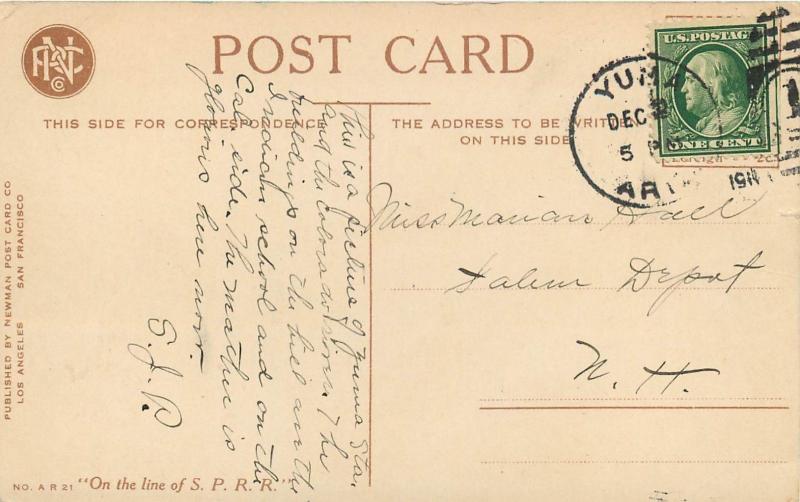 POST CARD
THIS SIDE FOR CORRESPONDENCE
THE ADDRESS TO BE WRITTEN
ON THIS SIDE
U.S. POSTAGE
ONE CENT
YUMA
DEC 2
5 PM
ARIZ
This is a picture of Yuma Sta.
and the Colorado River. The
buildings on the hill are the
Indian school and on the
Cal. side. The weather is
glorious here now.
S. J. P.
Miss Marian Hall
Salem Depot
N. H.
PUBLISHED BY NEWMAN POST CARD CO
LOS ANGELES SAN FRANCISCO
NO. A R 21 "On the line of S. P. R. R."